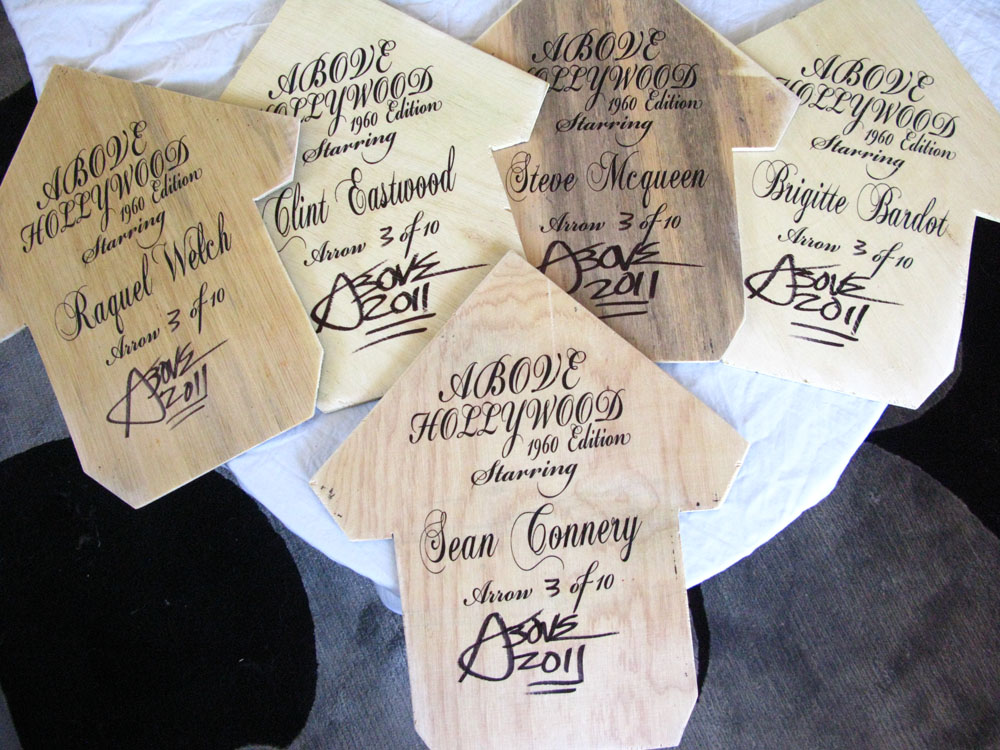 ABOVE
HOLLYWOOD
1960 Edition
Starring
Raquel Welch
Arrow 3 of 10
ABOVE
2011
ABOVE
HOLLYWOOD
1960 Edition
Starring
Clint Eastwood
Arrow 3 of 10
ABOVE
2011
ABOVE
HOLLYWOOD
1960 Edition
Starring
Steve Mcqueen
Arrow 3 of 10
ABOVE
2011
ABOVE
HOLLYWOOD
1960 Edition
Starring
Brigitte Bardot
Arrow 3 of 10
ABOVE
2011
ABOVE
HOLLYWOOD
1960 Edition
Starring
Sean Connery
Arrow 3 of 10
ABOVE
2011